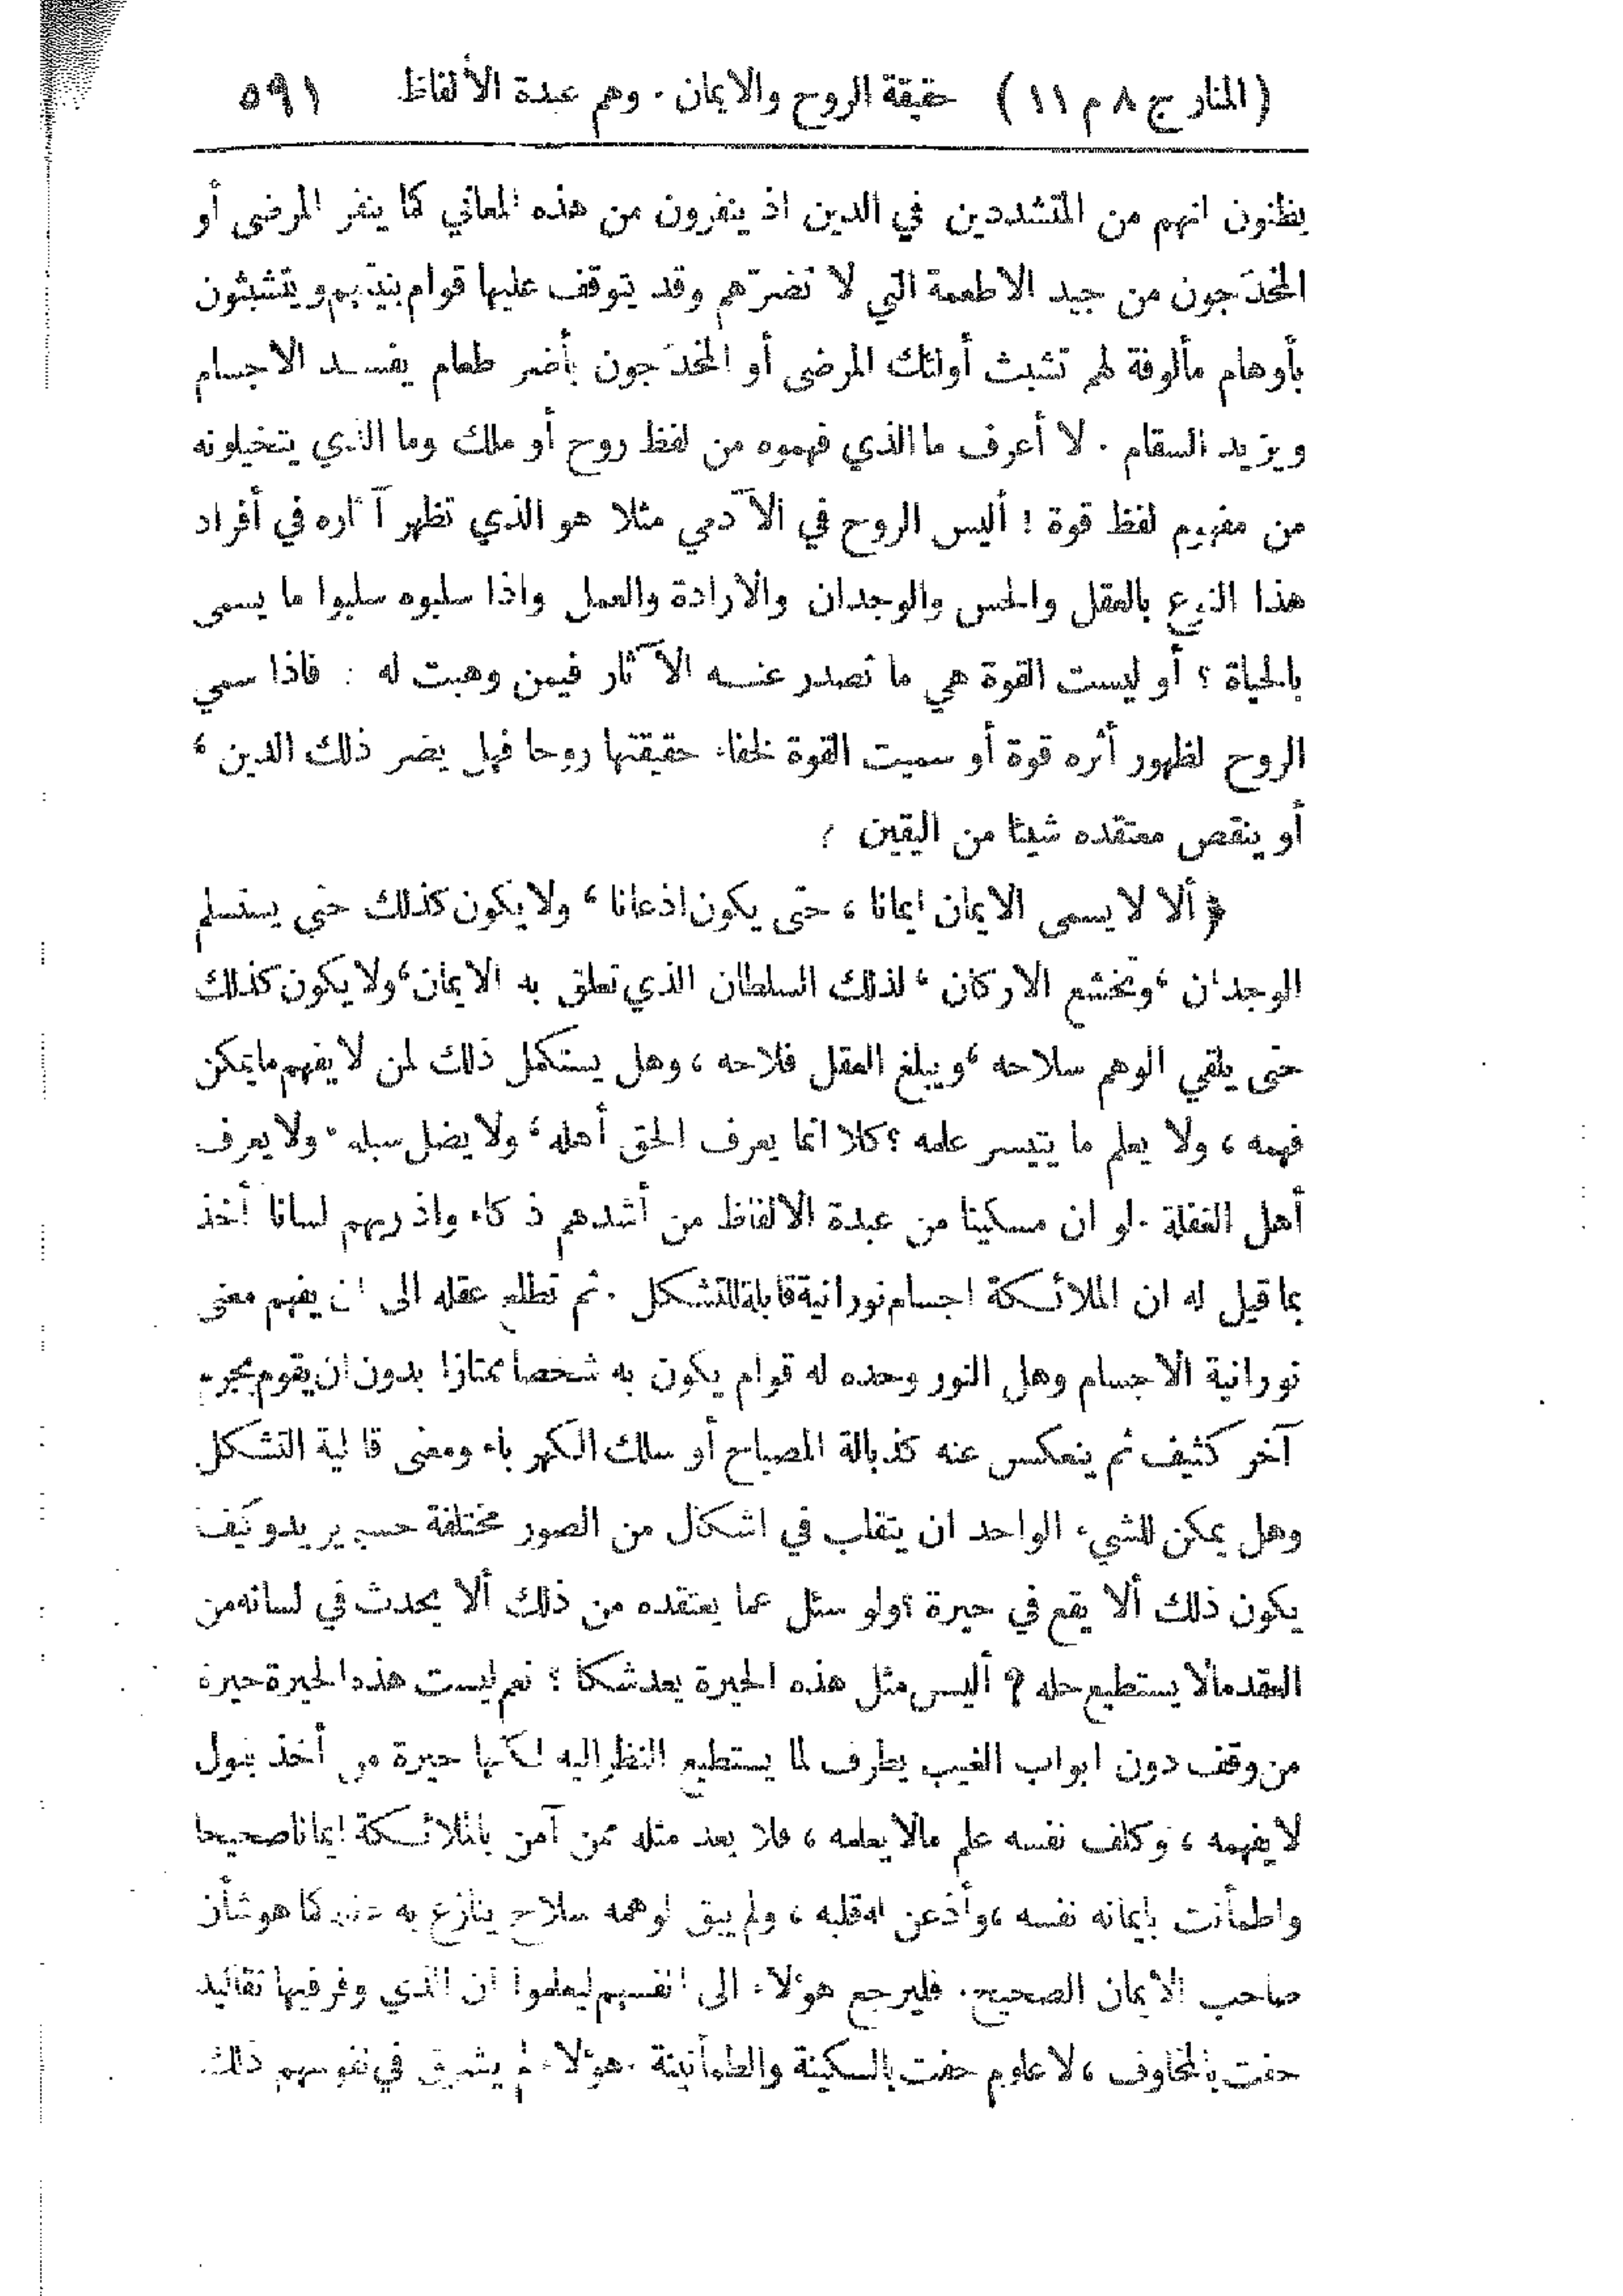 (المنار ج ٨ م ١١) حقيقة الروح والايمان . وهم عبدة الألفاظ ٥٩١
يظنون انهم من المتشددين في الدين اذ ينفرون من هذه المعاني كما ينفر المرضى أو
المخدَجون من جيد الاطعمة التي لا تضرّهم وقد يتوقف عليها قوام بنيتهم ويتشبثون
بأوهام مألوفة لهم تشبث أولئك المرضى أو المخدَجون بأضر طعام يفسد الاجسام
ويزيد السقام . لا أعرف ما الذي فهموه من لفظ روح أو ملك وما الذي يتخيلونه
من مفهوم لفظ قوة ! أليس الروح في الآدمي مثلا هو الذي تظهر آثاره في أفراد
هذا النوع بالعقل والحس والوجدان والارادة والعمل واذا سلبوه سلبوا ما يسمى
بالحياة ؟ أو ليست القوة هي ما تصدر عنه الآثار فيمن وهبت له : فاذا سمي
الروح لظهور أثره قوة أو سميت القوة لخفاء حقيقتها روحا فهل يضر ذلك الدين ،
أو ينقص معتقده شيئا من اليقين ؟
﴿ ألا لا يسمى الايمان ايمانا ، حتى يكون اذعانا ، ولا يكون كذلك حتى يستسلم
الوجدان ، وتخشع الاركان ، لذلك السلطان الذي تعلق به الايمان ، ولا يكون كذلك
حتى يلقي الوهم سلاحه ، ويبلغ العقل فلاحه ، وهل يستكمل ذلك لمن لا يفهم ما يمكن
فهمه ، ولا يعلم ما يتيسر علمه ؟ كلا انما يعرف الحق أهله ، ولا يضل سبله . ولا يعرف
أهل الغفلة . لو ان مسكينا من عبدة الالفاظ من أشدهم ذكاء واذربهم لسانا أخذ
بما قيل له ان الملائكة اجسام نورانية قابلة للتشكل . ثم تطلع عقله الى ان يفهم معنى
نورانية الاجسام وهل النور وحده له قوام يكون به شخصا ممتازا بدون ان يقوم بجرم
آخر كثيف ثم ينعكس عنه كذبالة المصباح أو سلك الكهرباء ومعنى قابلية التشكل
وهل يمكن للشيء الواحد ان يتقلب في اشكال من الصور مختلفة حسبما يريد وكيف
يكون ذلك ألا يقع في حيرة ؟ ولو سئل عما يعتقده من ذلك ألا يحدث في لسانه من
العقد مالا يستطيع حله ؟ أليس مثل هذه الحيرة يعد شكا ؟ نعم ليست هذه الحيرة حيرة
من وقف دون ابواب الغيب يطرف لما يستطيع النظر اليه لكنها حيرة من أخذ بقول
لا يفهمه ، وكلف نفسه علم مالا يعلمه ، فلا يعد مثله ممن آمن بالملائكة ايمانا صحيحا
واطمأنت بإيمانه نفسه ، وأذعن له قلبه ، ولم يبق لوهمه سلاح ينازع به عقله كما هو شأن
صاحب الايمان الصحيح . فليرجع هؤلاء الى انفسهم ليعلموا ان الذي وقر فيها تقاليد
حفت بالمخاوف ، لا علوم حفت بالسكينة والطمأنينة . هؤلاء لم يشرق في نفوسهم ذلك